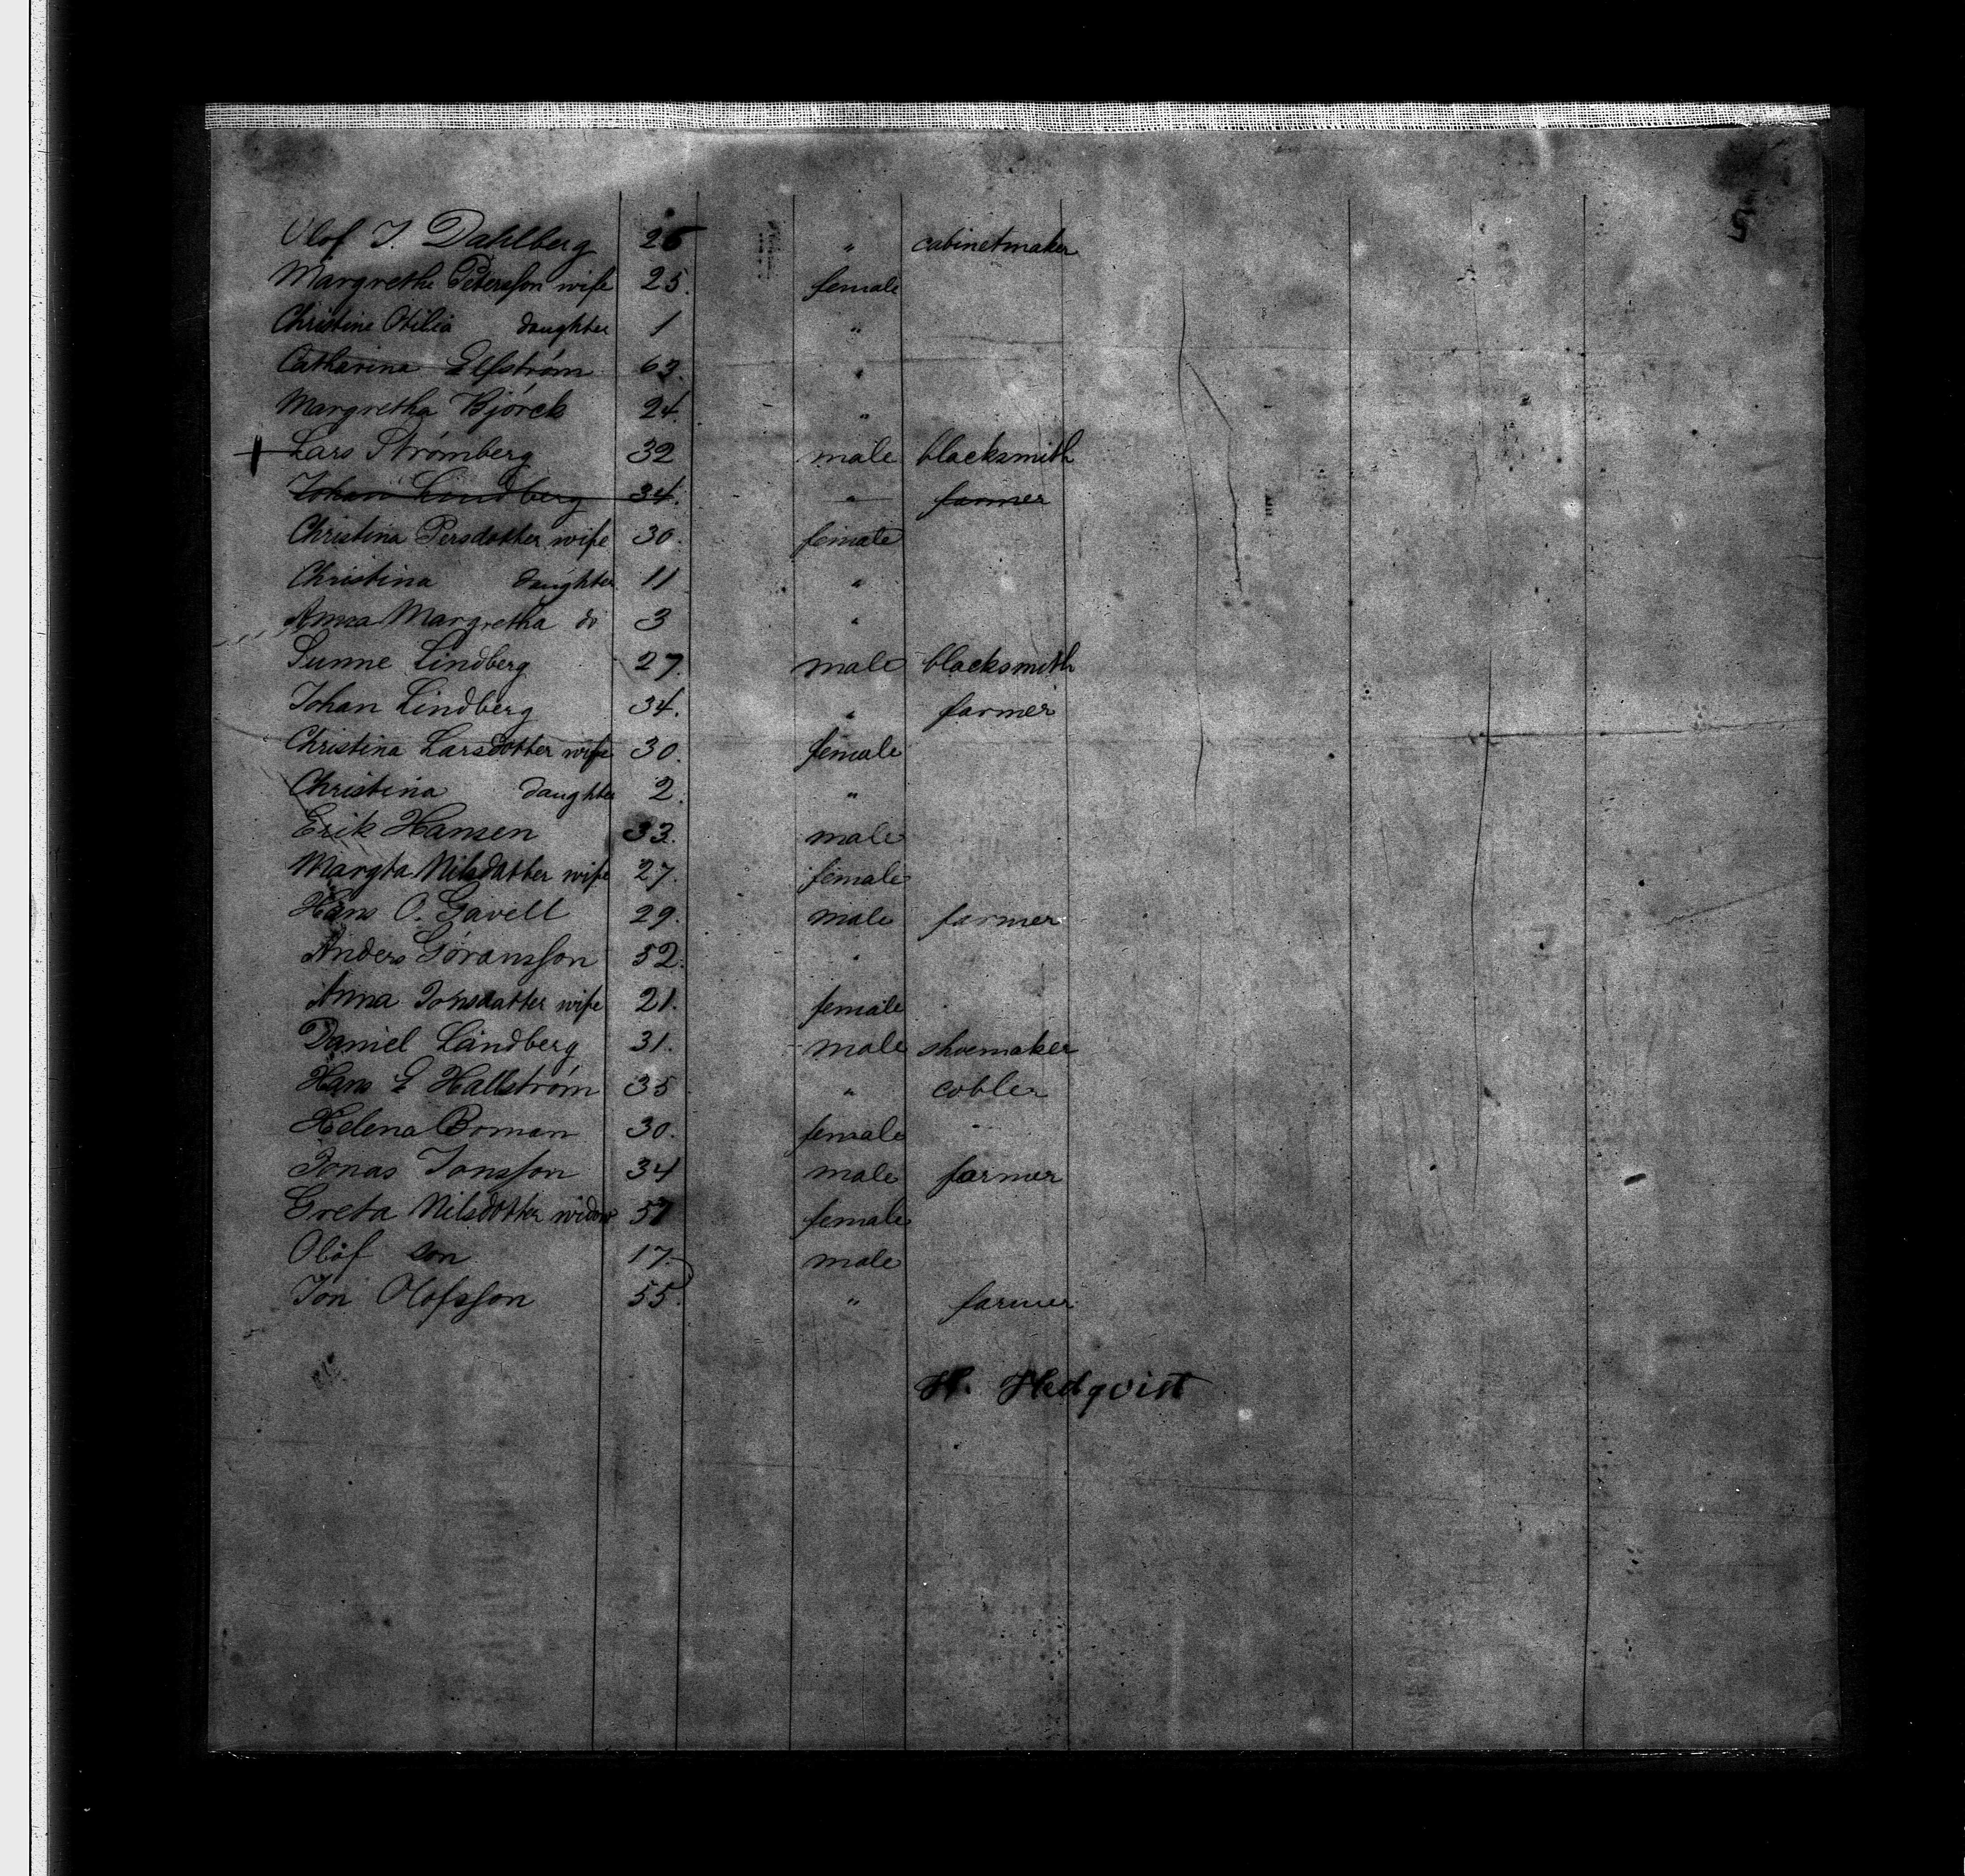 5
Olof J. Dahlberg 26 " cabinetmaker
Margrethe Petersson wife 25. female
Christine Otilia daughter 1 "
Catharina Elfström 63. "
Margretha Björck 24. "
Lars Strömberg 32 male blacksmith
Johan Lindberg 34. " farmer
Christina Persdotter wife 30. female
Christina daughter 11 "
Anna Margretha do 3 "
Sunne Lindberg 27. male blacksmith
Johan Lindberg 34. " farmer
Christina Larsdotter wife 30. female
Christina daughter 2. "
Erik Hansen 33. male
Margta Nilsdatter wife 27. female
Hans O. Gavell 29. male farmer
Anders Göransson 52. "
Anna Jonsdatter wife 21. female
Daniel Landberg 31. male shoemaker
Hans E Hallström 35 " cobler
Helena Boman 30. female
Jonas Jonsson 34 male farmer
Greta Nilsdotter widow 57 female
Olof son 17. male
Jon Olofsson 55. " farmer
H. Hedqvist